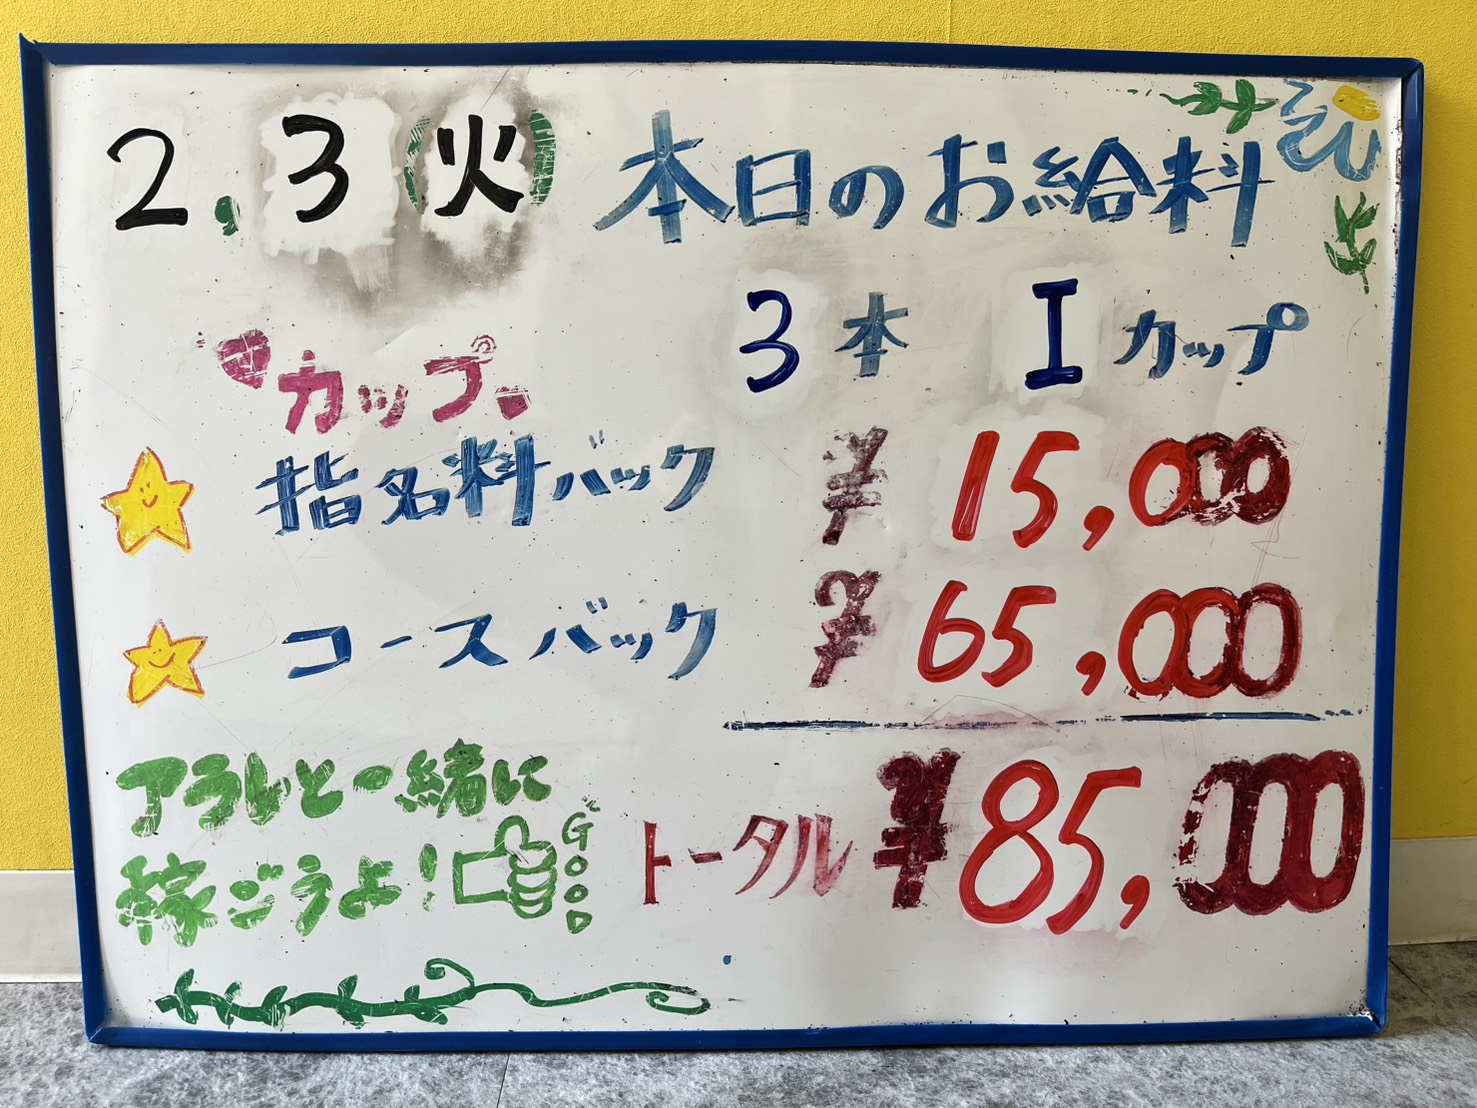 2.3(火) 本日のお給料
3本 Iカップ
カップ
指名料バック ¥15,000
コースバック ¥65,000
アラレと一緒に
稼ごうよ! GOOD
トータル ¥85,000